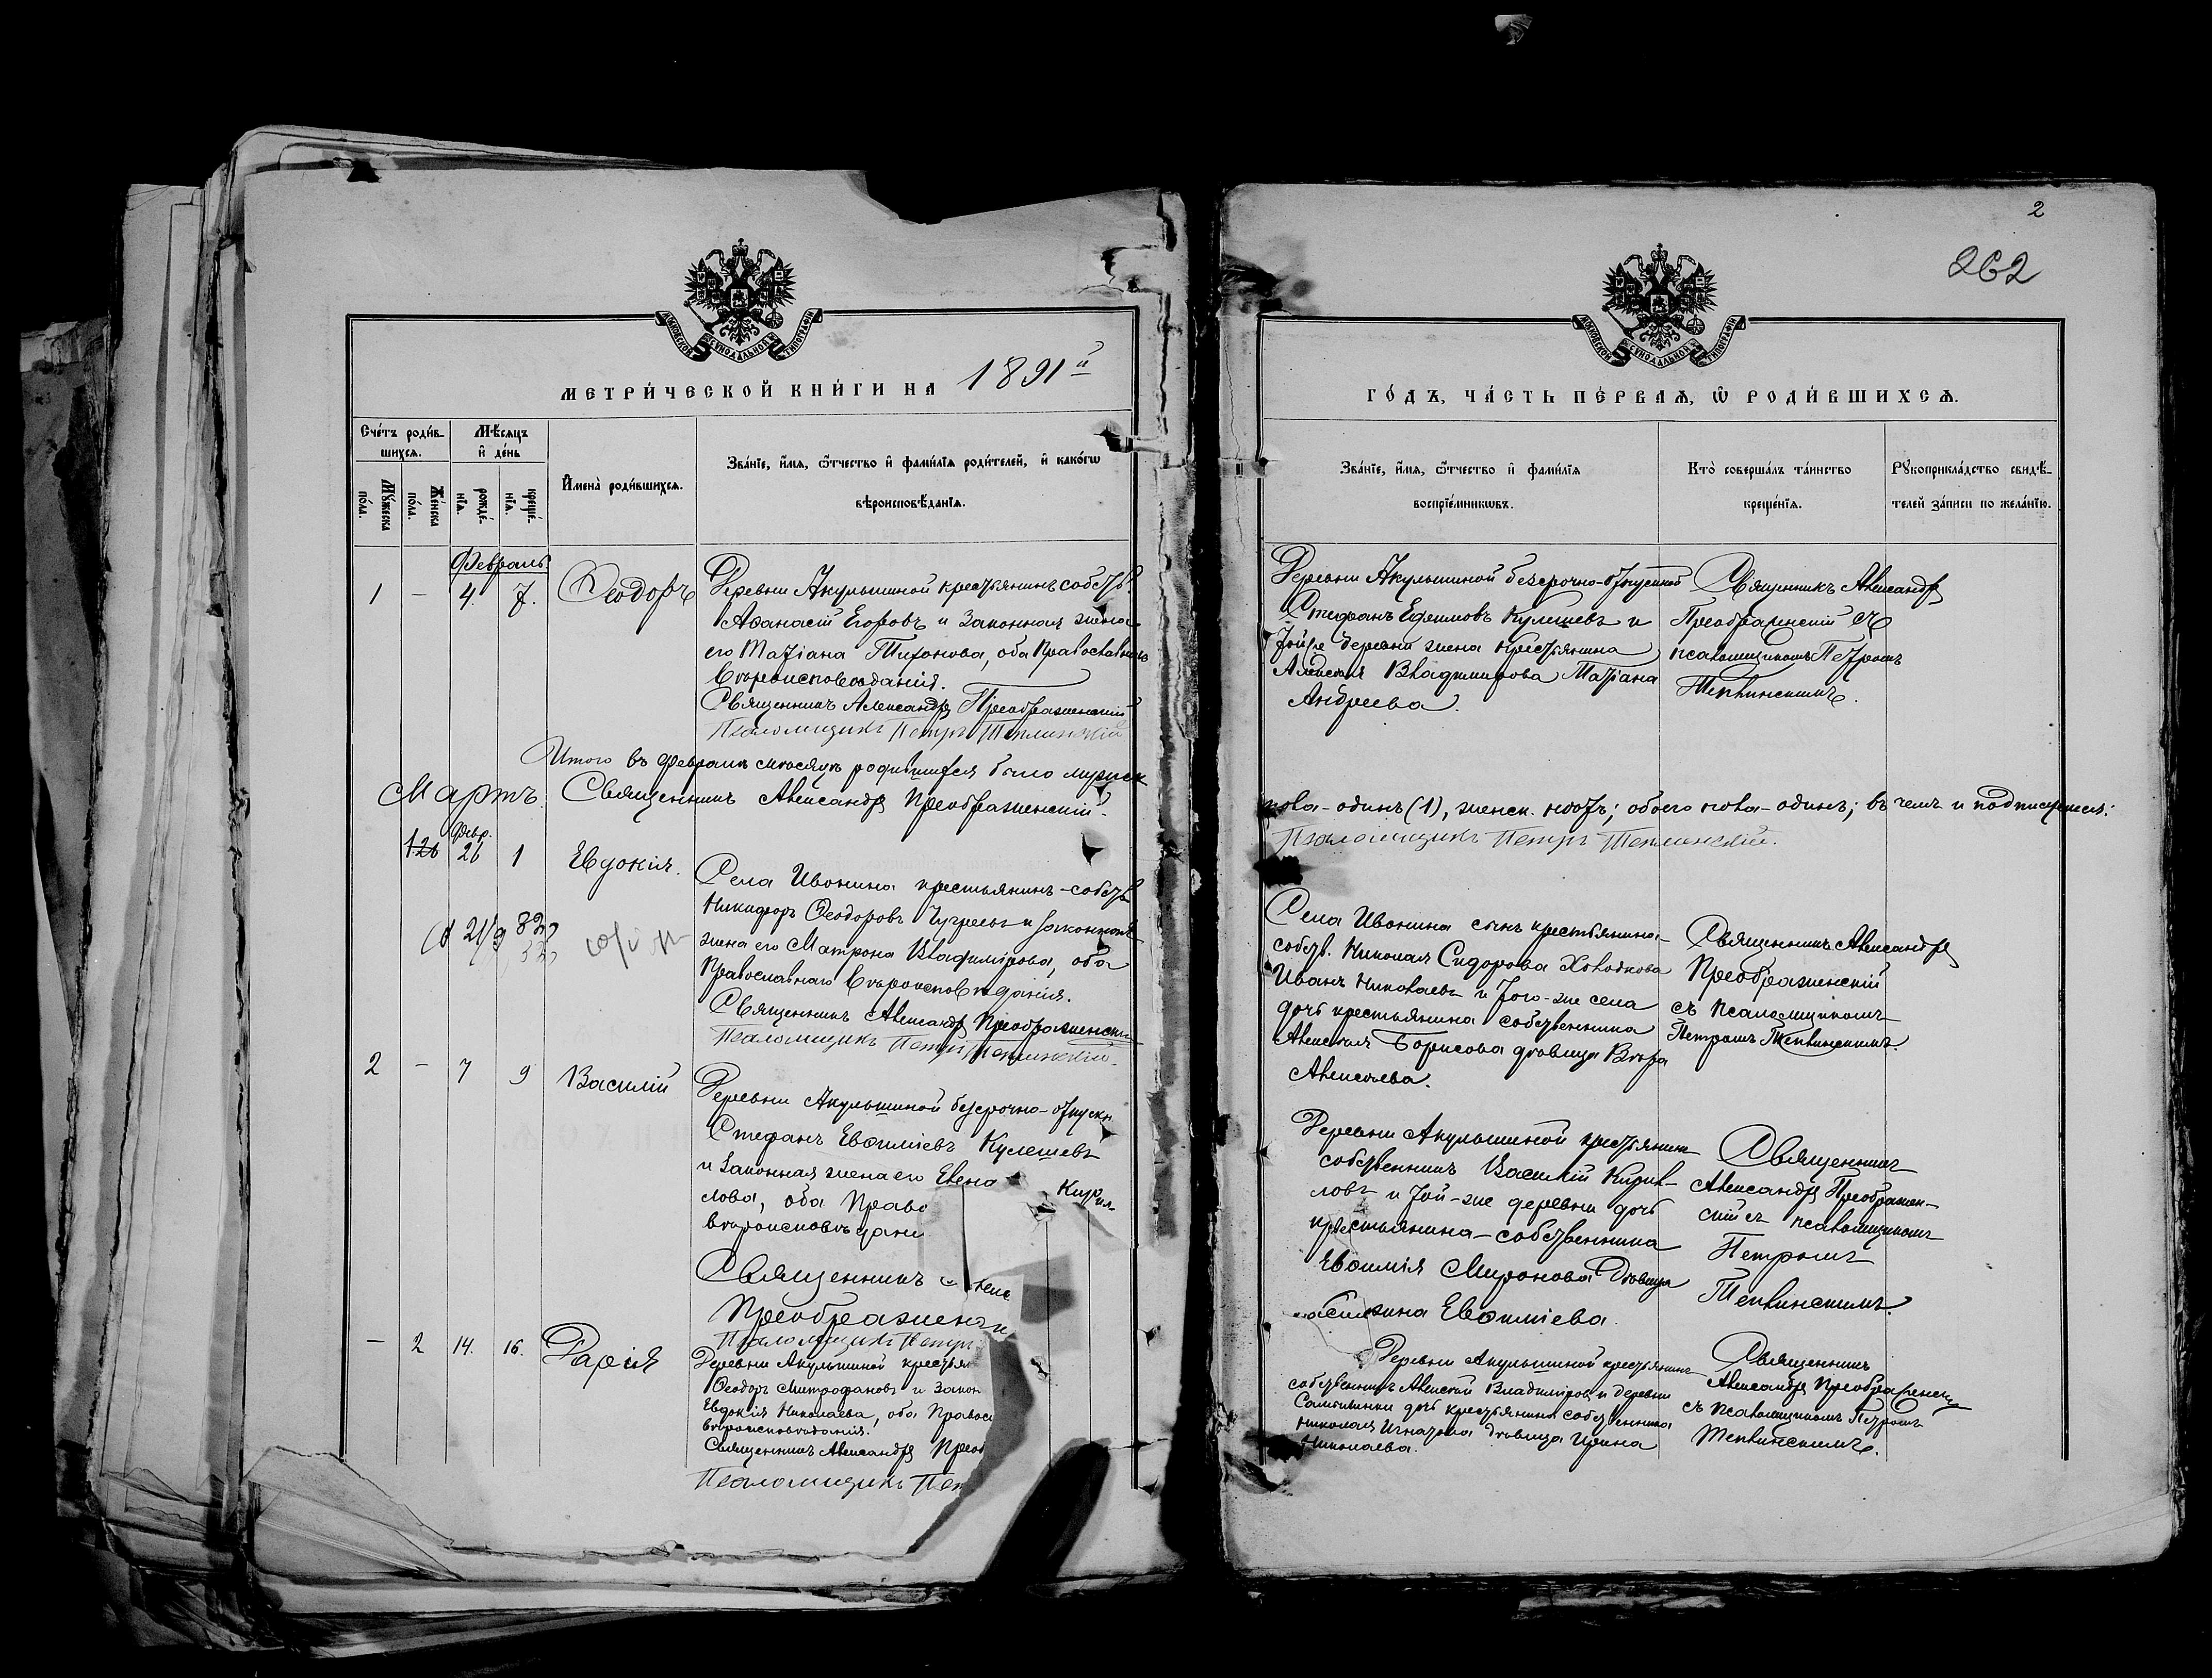 2
262
МОСКОВСКОЙ СѴНОДАЛЬНОЙ ТИПОГРАФІИ
МЕТРИ́ЧЕСКОЙ КНИ́ГИ НА 1891й
Сче́тъ роди́в-
шихсѧ.
Мѣ́сѧцъ
и҆ де́нь
Мꙋ́жеска
по́ла.
Же́нска
по́ла.
рожде́-
нїѧ.
креще́-
нїѧ.
И҆мена̀ роди́вшихсѧ.
Зва́нїе, и҆́мѧ, ѻ҆́тчество и҆ фами́лїѧ роди́телей, и҆ како́гѡ
вѣроисповѣ́данїѧ.
Февраль
1 - 4. 7. Ѳеодоръ
Деревни Акульшиной крестьянинъ собств.
Аѳанасій Егоровъ и законная жена
его Татіана Тихонова, оба Православнаго
вѣроисповѣданія.
Священникъ Александръ Преображенскій
Псаломщикъ Петръ Теплинскій
Итого въ Февралѣ мѣсяцѣ родившихся было мужск
Мартъ. Священникъ Александръ Преображенскій.
Февр.
1 26 26 1 Евдокія.
Села Ивонина крестьянинъ-собств
Никифоръ Ѳеодоровъ и законная
жена его Матрона Владимірова, оба
Православнаго вѣроисповѣданія.
Священникъ Александръ Преображенскій
Псаломщикъ Петръ Теплинскій.
2 - 7 9 Василій
Деревни Акульшиной безсрочно-отпускн
Стефанъ Евѳиміевъ Кулешевъ
и законная жена его Елена Кирил-
лова, оба Право
вѣроисповѣдані
Священникъ Алекс
Преображенскі
Псаломщикъ Петръ
- 2 14. 16. Дарія
Деревни Акульшиной крестьян
Ѳеодоръ Митрофановъ и закон
Евдокія Николаева, оба Правос
вѣроисповѣданія.
Священникъ Александръ Преоб
Псаломщикъ Пет
МОСКОВСКОЙ СѴНОДАЛЬНОЙ ТИПОГРАФІИ
ГО́ДЪ, ЧА́СТЬ ПЕ́РВАѦ, Ѡ҆ РОДИ́ВШИХСѦ.
Зва́нїе, и҆́мѧ, ѻ҆́тчество и҆ фами́лїѧ
воспрїе́мникѡвъ.
Кто̀ соверша́лъ та́инство
креще́нїѧ.
Рꙋкоприкла́дство свидѣ́-
телей за́писи по жела́нїю.
Деревни Акульшиной безсрочно-отпускной
Стефанъ Ефимовъ Кулешевъ и
той же деревни жена крестьянина
Алексія Владимирова Татіана
Андреева.
Священникъ Александръ
Преображенскій съ
псаломщикомъ Петромъ
Теплинскимъ.
пола-одинъ (1), женск. нѣтъ; обоего пола-одинъ; въ чемъ и подписуемся:
Псаломщикъ Петръ Теплинскій.
Села Ивонина сынъ крестьянина-
собств. Николая Сидорова Холодкова
Иванъ Николаевъ и того-же села
дочь крестьянина собственника
Алексѣя Борисова дѣвица Вѣра
Алексѣева.
Священникъ Александръ
Преображенскій
съ псаломщикомъ
Петромъ Теплинскимъ.
Деревни Акульшиной крестьянинъ
собственникъ Василій Кирил-
ловъ и той-же деревни дочь
крестьянина-собственника
Евѳимія Миронова дѣвица
Евѳиміева.
Священникъ
Александръ Преображен-
скій съ псаломщикомъ
Петромъ
Теплинскимъ.
Деревни Акульшиной крестьянинъ
собственникъ Алексѣй Владиміровъ и деревни
дочь крестьянина собственника
Николая Игнатова дѣвица Ирина
Николаева.
Священникъ
Александръ Преображенскій
съ псаломщикомъ Петромъ
Теплинскимъ.